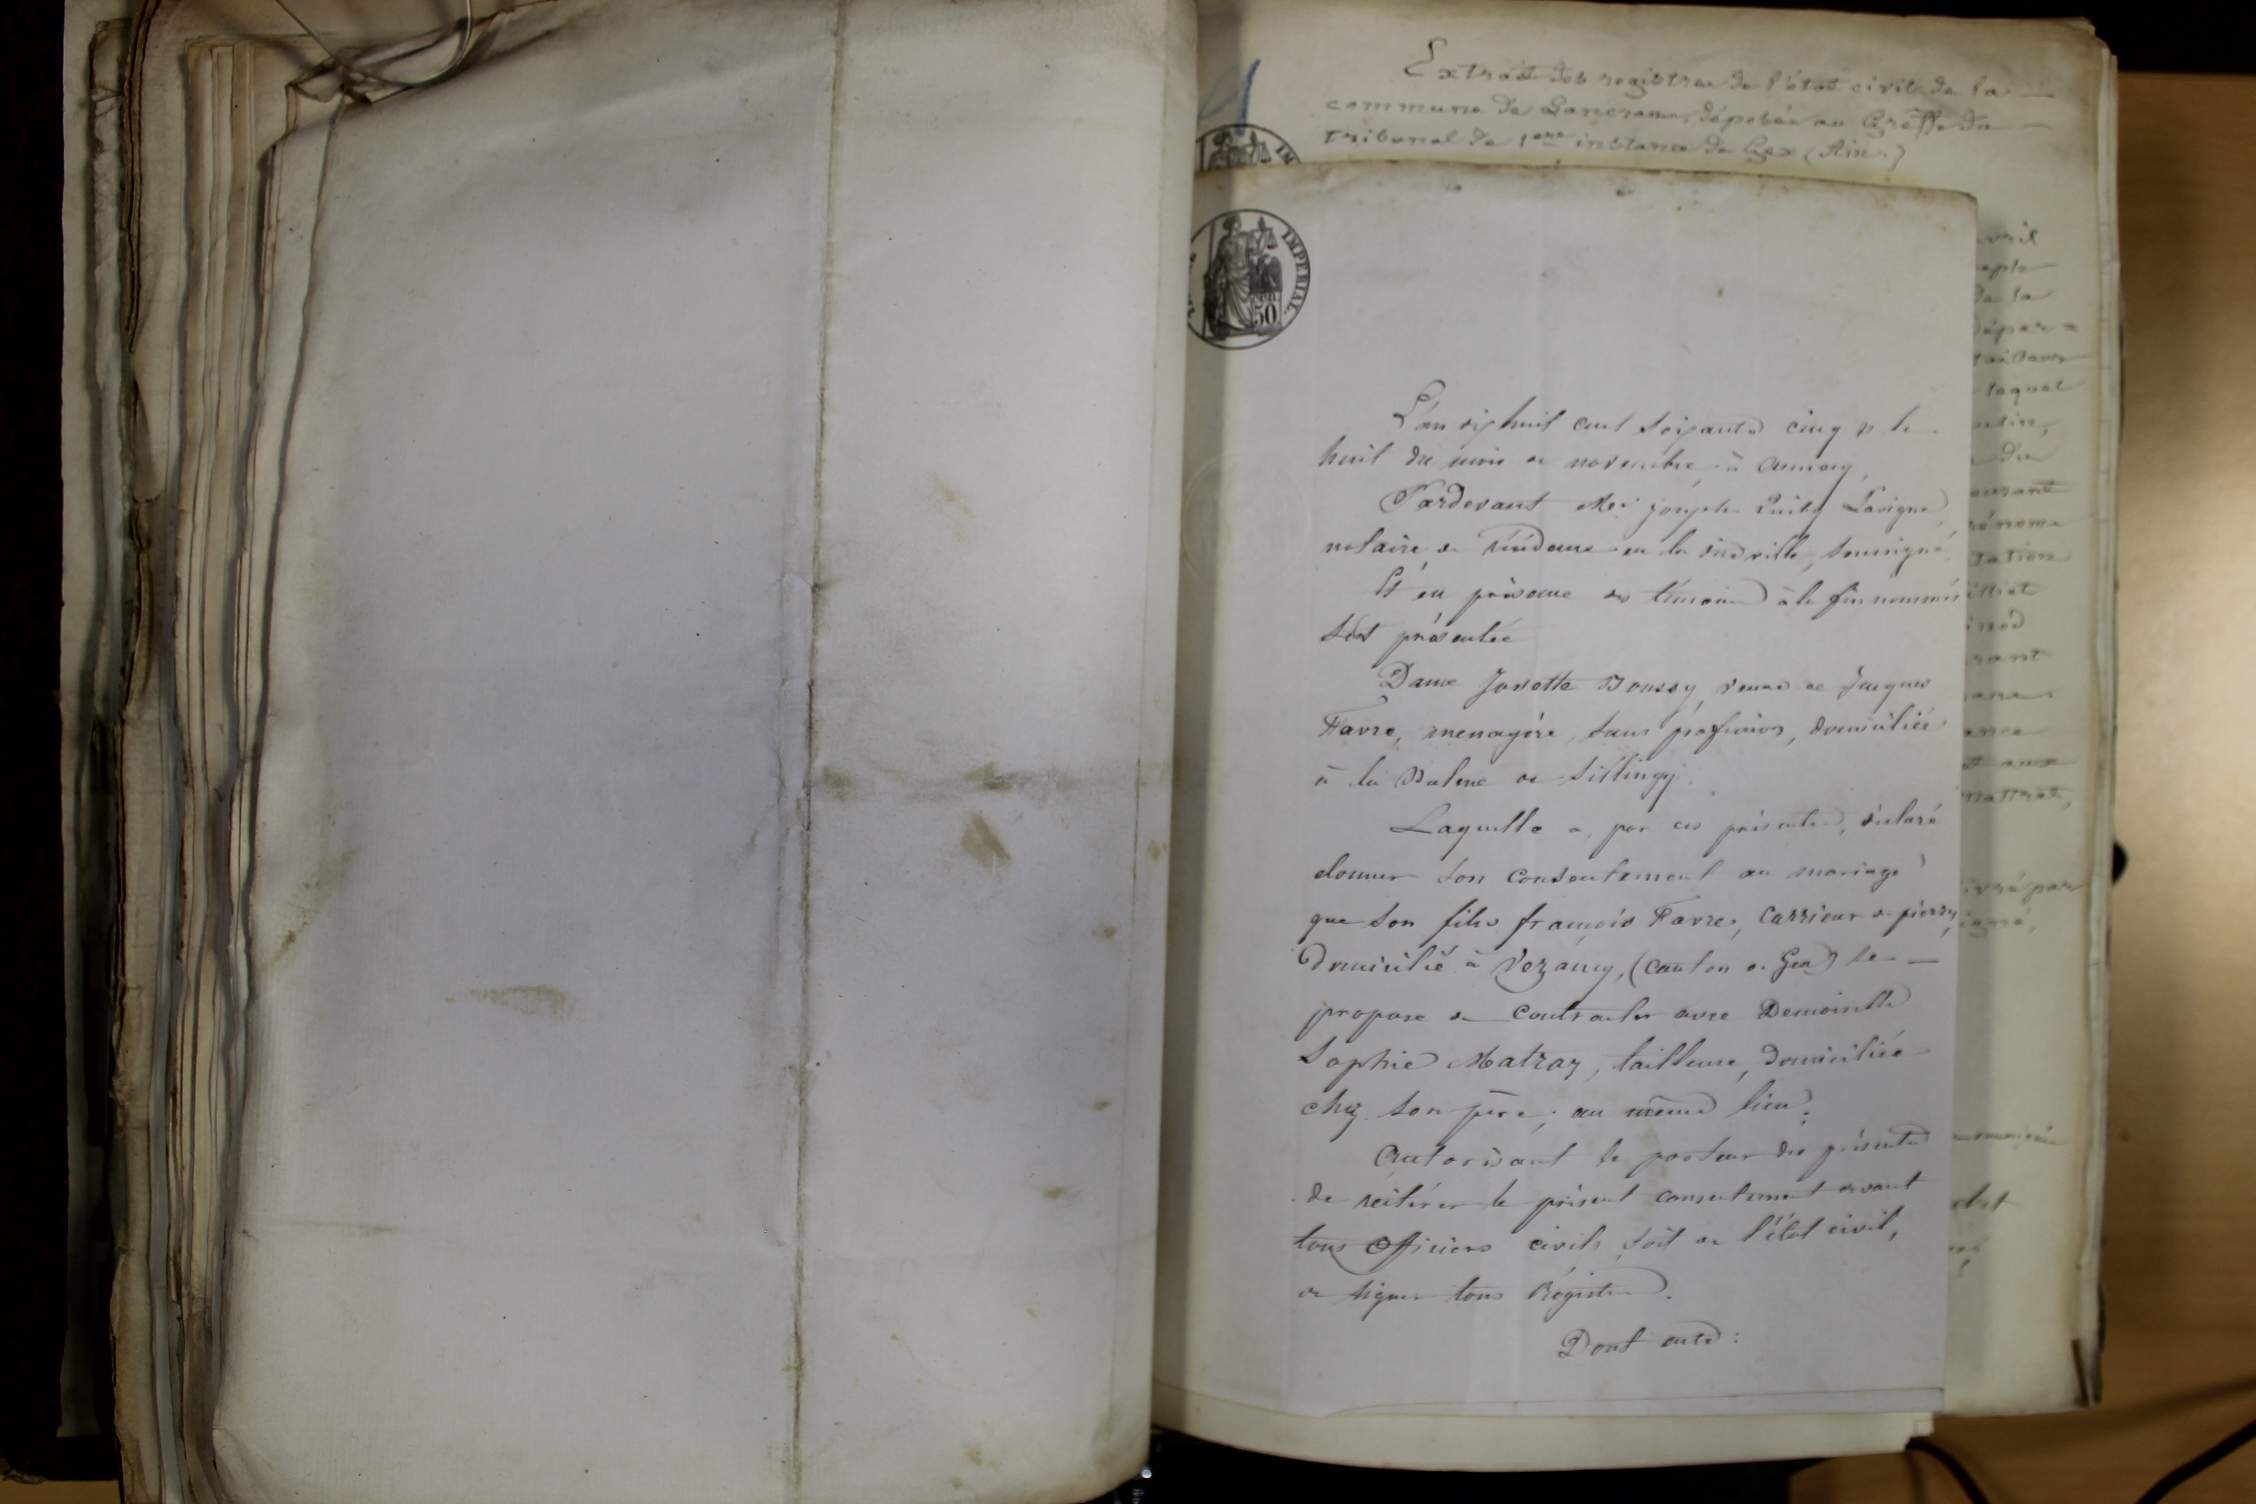 Extrait des registres de l'état civil de la
commune de Lancrans, déposés au Greffe du
tribunal de 1ere instance de Gex (Ain.)
IMPERIAL
50
L'an dix huit cent soixante cinq & le
huit du mois de novembre à Annecy,
Pardevant Me Joseph Lavigne,
notaire de résidence en la dite ville, soussigné.
Et en présence des témoins à la fin nommés
s'est présentée
Dame Josette Boussy, veuve de Jacques
Favre, menagère, sans profession, domiciliée
à la Balme de Sillingy.
Laquelle a, par ces présentes, déclaré
donner son consentement au mariage
que son fils françois Favre, carrieur de pierre,
domicilié à Vezancy, (canton de Gex) se
propose de contracter avec Demoiselle
Sophie Matray, tailleuse, domiciliée
chez son père, au même lieu.
Autorisant le porteur des présentes
de réitérer le présent consentement devant
tous Officiers civils soit de l'état civil,
de signer tous Régistres.
Dont acte: